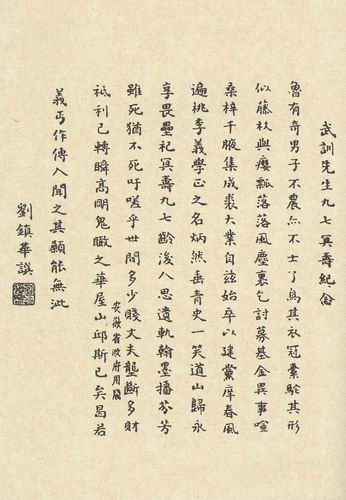 武訓先生九七冥壽紀念
魯有奇男子不農亦不士了鳥其衣冠橐駝其形
似藤杖與癭瓢落落風塵裏乞討募基金異事喧
桑梓千腋集成裘大業自茲始卒以建黌庠春風
遍桃李義學正之名炳然垂青史一笑道山歸永
享畏壘祀冥壽九七齡後人思遺軌翰墨播芬芳
雖死猶不死吁嗟乎世間多少賤丈夫壟斷多財
祗利己轉瞬高明鬼瞰之華屋山邱斯已矣曷若
安徽省政府用牋
義丐作傳人聞之其顙能無泚
劉鎮華譔